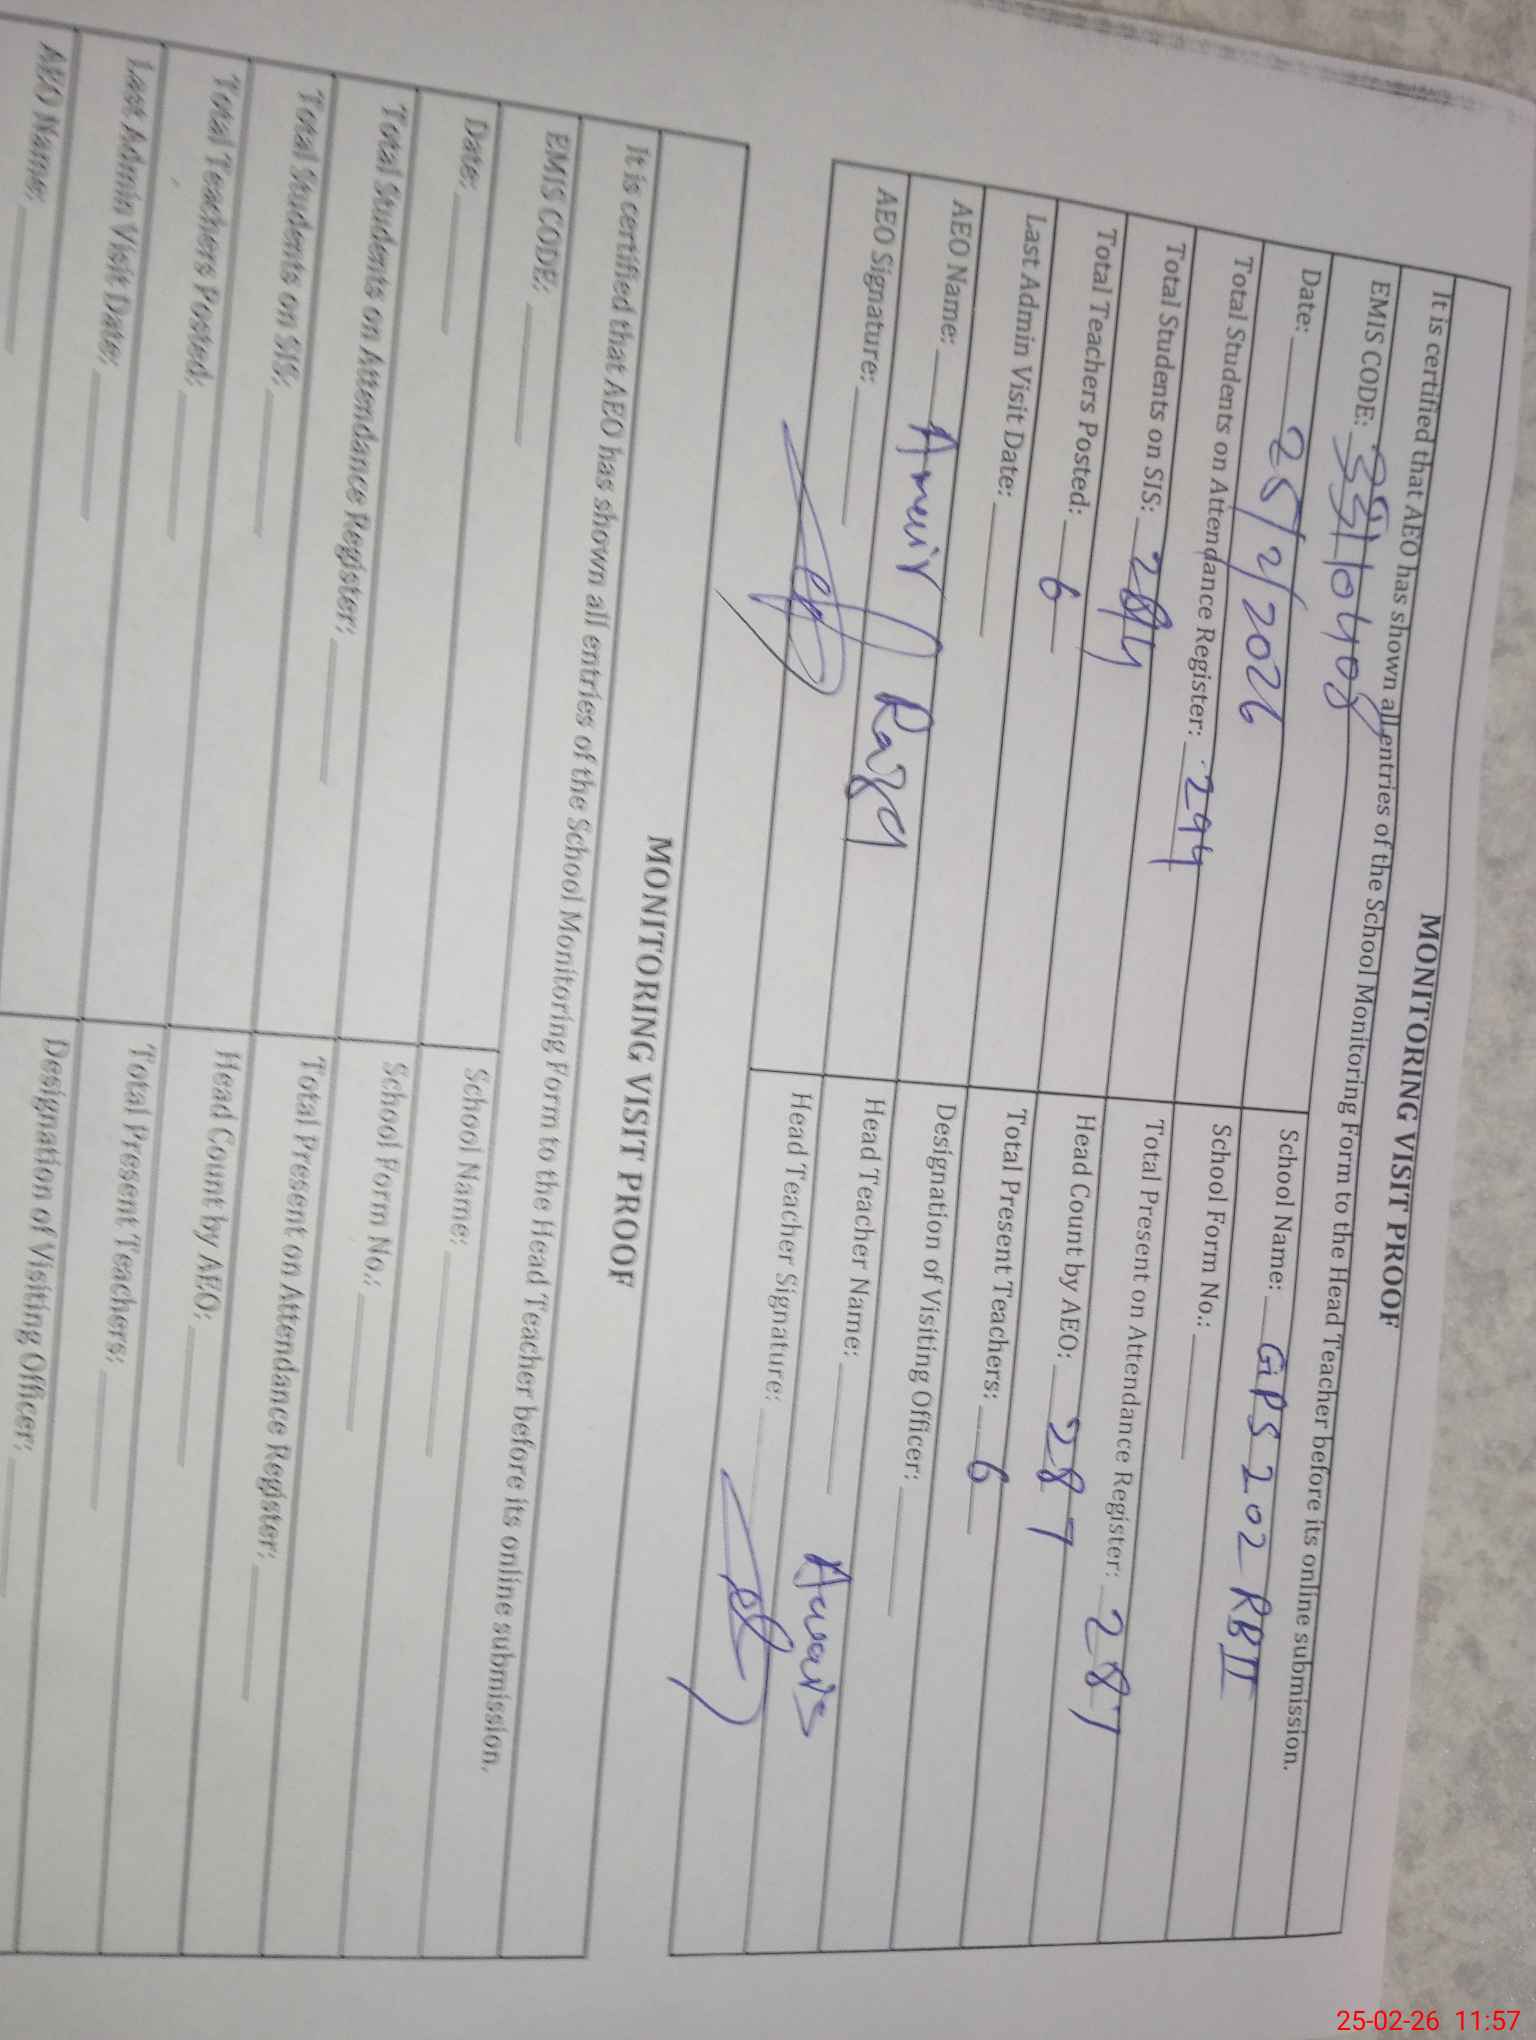 MONITORING VISIT PROOF
It is certified that AEO has shown all entries of the School Monitoring Form to the Head Teacher before its online submission.
EMIS CODE: 33110408
Date: 25/2/2026
School Name: GPS 202 RB II
Total Students on Attendance Register: 294
School Form No.:
Total Students on SIS: 294
Total Present on Attendance Register: 287
Total Teachers Posted: 6
Head Count by AEO: 287
Last Admin Visit Date:
Total Present Teachers: 6
AEO Name: Amir Raza
Designation of Visiting Officer:
AEO Signature:
Head Teacher Name: Awais
Head Teacher Signature:
MONITORING VISIT PROOF
It is certified that AEO has shown all entries of the School Monitoring Form to the Head Teacher before its online submission.
EMIS CODE:
Date:
School Name:
Total Students on Attendance Register:
School Form No.:
Total Students on SIS:
Total Present on Attendance Register:
Total Teachers Posted:
Head Count by AEO:
Last Admin Visit Date:
Total Present Teachers:
AEO Name:
Designation of Visiting Officer:
25-02-26 11:57